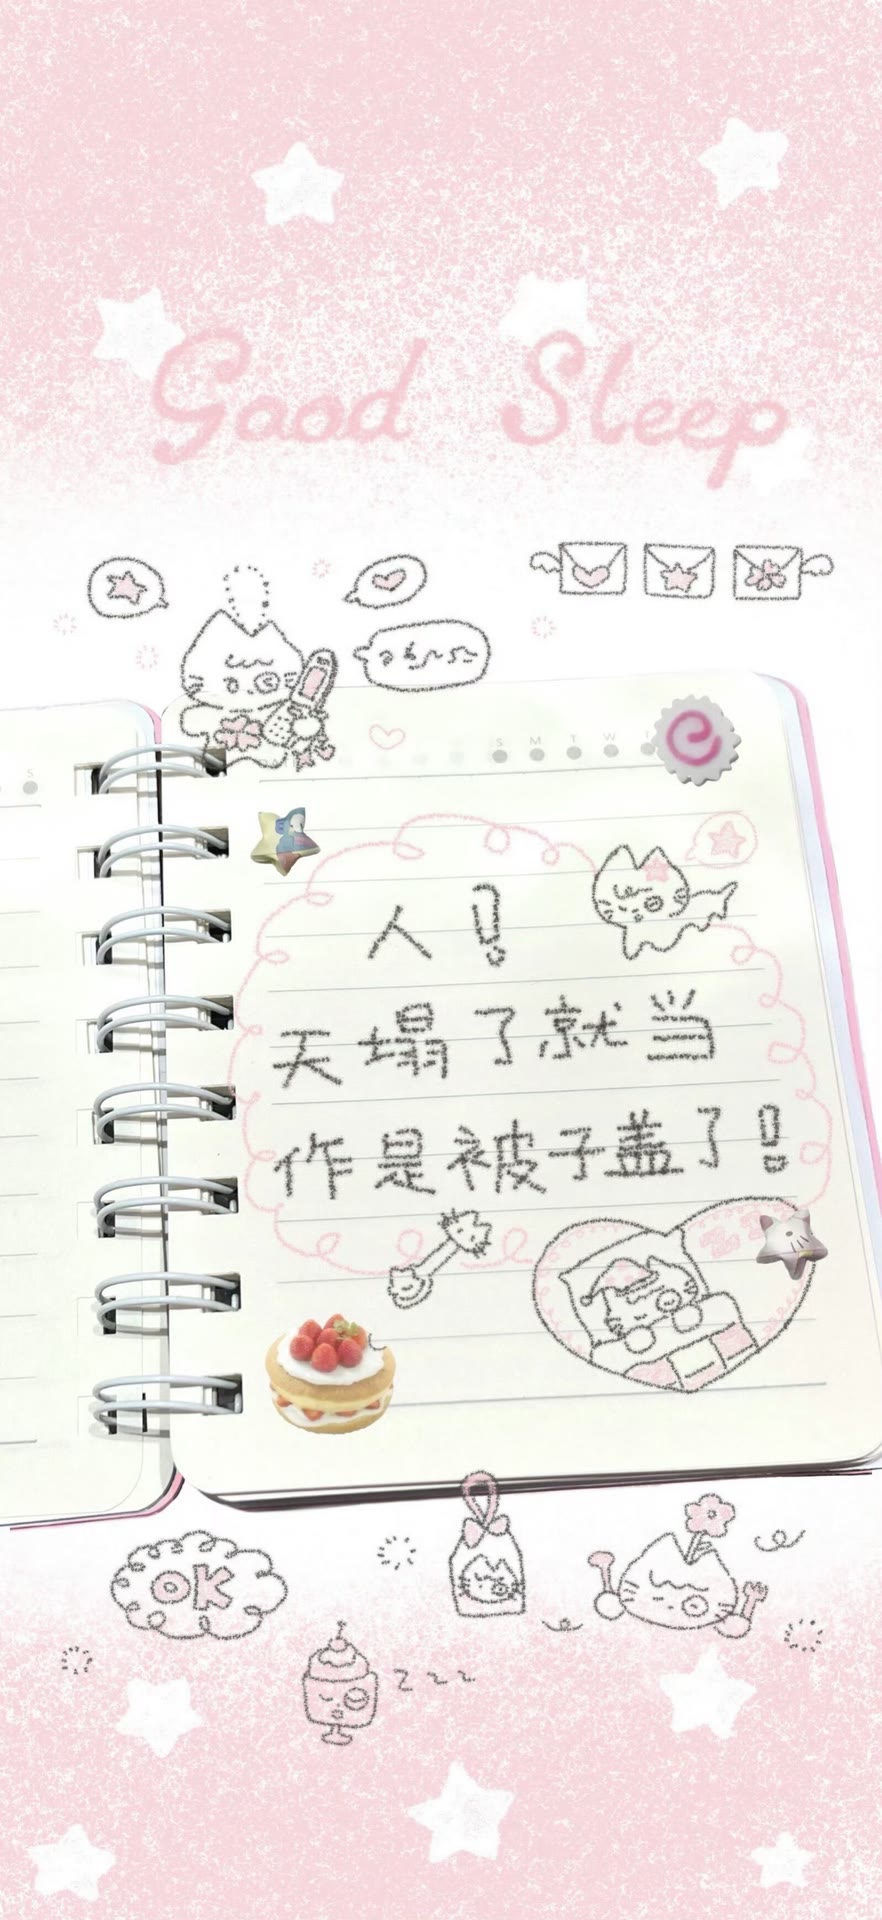 Good Sleep
S M T W T
S
人！
天塌了就当
作是被子盖了！
OK
z z z